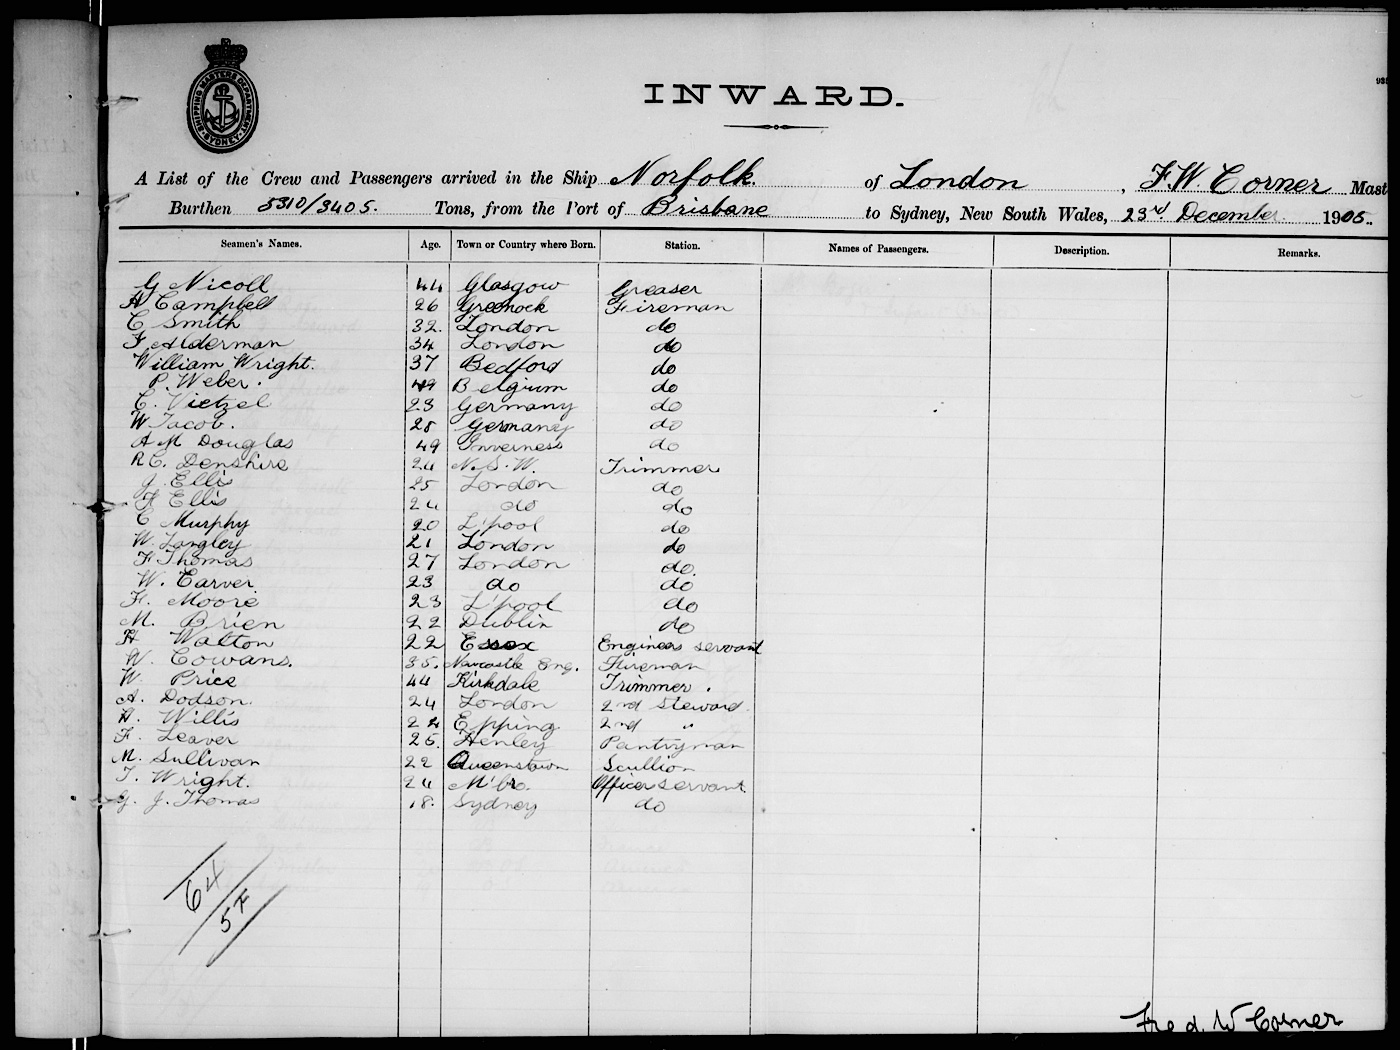 SHIPPING MASTERS DEPARTMENT
SYDNEY
INWARD.
A List of the Crew and Passengers arrived in the Ship Norfolk. of London , F.W. Corner Mast
Burthen 5310/3405. Tons, from the Port of Brisbane to Sydney, New South Wales, 23rd December 1905.
Seamen's Names. Age. Town or Country where Born. Station. Names of Passengers. Description. Remarks.
G Nicoll 44 Glasgow Greaser
A Campbell 26 Greenock Fireman
C Smith 32. London do
F. Alderman 34 London do
William Wright. 37 Bedford do
P. Weber. 49 Belgium do
C. Vietzel 23 Germany do
W Jacob. 28 Germany do
A M Douglas 49 Inverness do
R C. Denshire 24 N.S.W. Trimmer
J. Ellis 25 London do
F Ellis 24 do do
C Murphy 20 L'pool do
W. Langley 21 London do
F Thomas 27 London do.
W. Carver 23 do do
H. Moore 23 L'pool do
M. Brien 22 Dublin do
H Walton 22 Essex Engineers servant
W. Cowans. 35. Newcastle Eng. Fireman
W. Price 44 Kirkdale Trimmer.
A. Dodson. 24 London 2nd Steward.
H. Willis 24 Epping 2nd "
F. Leaver 25. Henley Pantryman
M. Sullivan 22 Queenstown Scullion
T. Wright. 24 M'br. Officer servant.
G. J. Thomas 18. Sydney do
64
57
Fred. W Corner